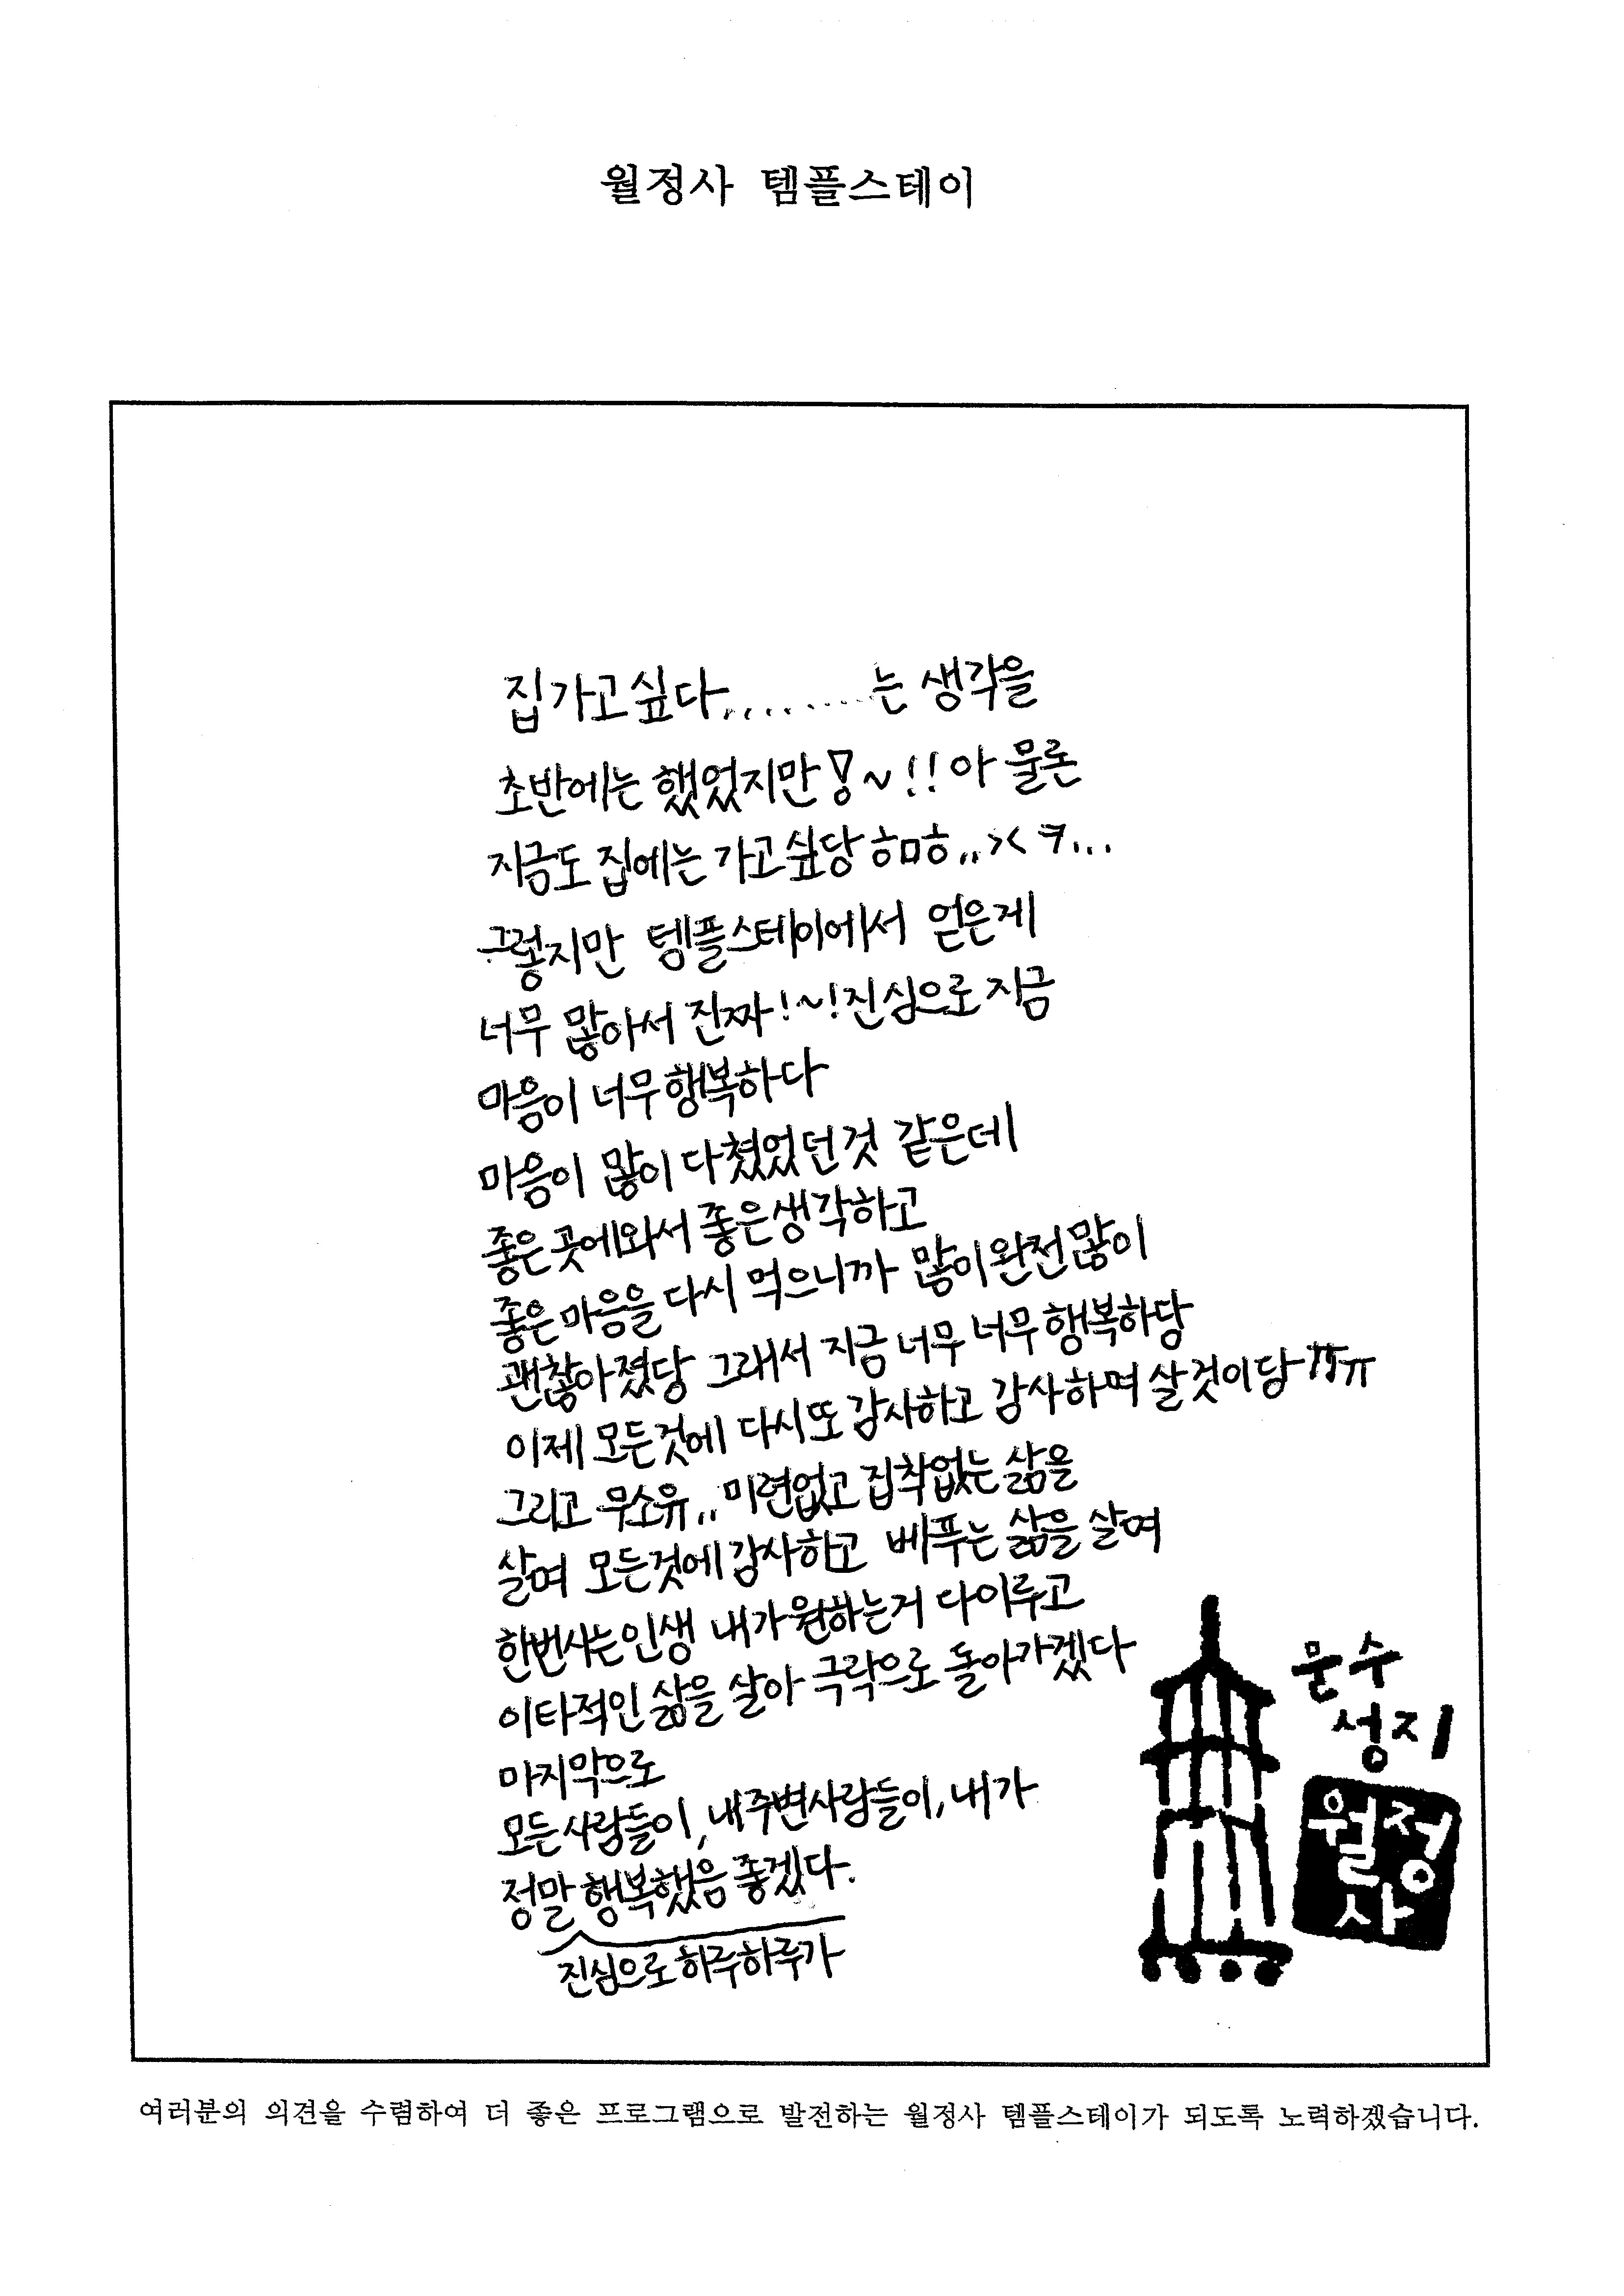 월정사 템플스테이
집가고싶다.,..........는 생각을
초반에는 했었지만!~!! 아 물론
지금도 집에는 가고싶당 ㅎㅁㅎ,,>< ㅋ...
그렇지만 템플스테이에서 얻은게
너무 많아서 진짜!~!진심으로 지금
마음이 너무행복하다
마음이 많이 다쳤었던것 같은데
좋은 곳에와서 좋은생각하고
좋은마음을 다시 먹으니까 많이완전많이
괜찮아졌당 그래서 지금 너무 너무행복하당
이제 모든것에 다시또감사하고 감사하며살것이당ㅠㅠ
그리고 무소유,, 미련없고 집착없는 삶을
살며 모든것에감사하고 베푸는 삶을 살며
한번사는인생 내가원하는거 다이루고
이타적인 삶을 살아 극락으로 돌아가겠다
마지막으로
모든사람들이, 내주변사람들이, 내가
정말 행복했음 좋겠다.
진심으로 하루하루가
문수
성지
월정
사
여러분의 의견을 수렴하여 더 좋은 프로그램으로 발전하는 월정사 템플스테이가 되도록 노력하겠습니다.